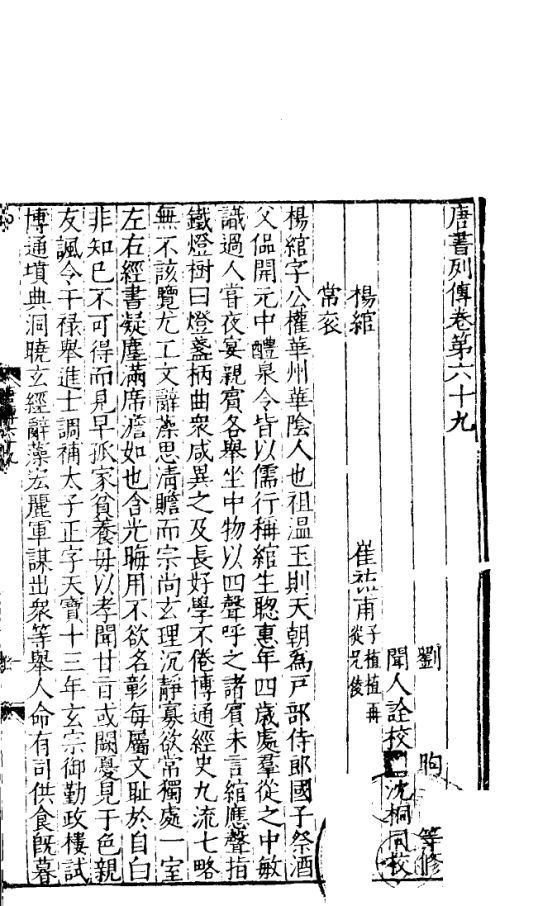 唐書列傳卷第六十九
劉 昫 等修
聞人詮校 沈桐同校
楊綰 崔祐甫 子植 植再從兄俊
常袞
楊綰字公權華州華陰人也祖温玉則天朝為戸部侍郎國子祭酒
父偘開元中醴泉令皆以儒行稱綰生聦惠年四歳處羣從之中敏
識過人甞夜宴親賓各舉坐中物以四聲呼之諸賓未言綰應聲指
鐵燈樹曰燈盞柄曲衆咸異之及長好學不倦博通經史九流七略
無不該覽尤工文辭藻思清贍而宗尚玄理沉靜寡欲常獨處一室
左右經書凝塵滿席澹如也含光晦用不欲名彰每屬文耻於自白
非知己不可得而見早孤家貧養母以孝聞甘旨或闕憂見于色親
友諷令干禄舉進士調補太子正字天寶十三年玄宗御勤政樓試
博通墳典洞曉玄經辭藻宏麗軍謀出衆等舉人命有司供食既暮